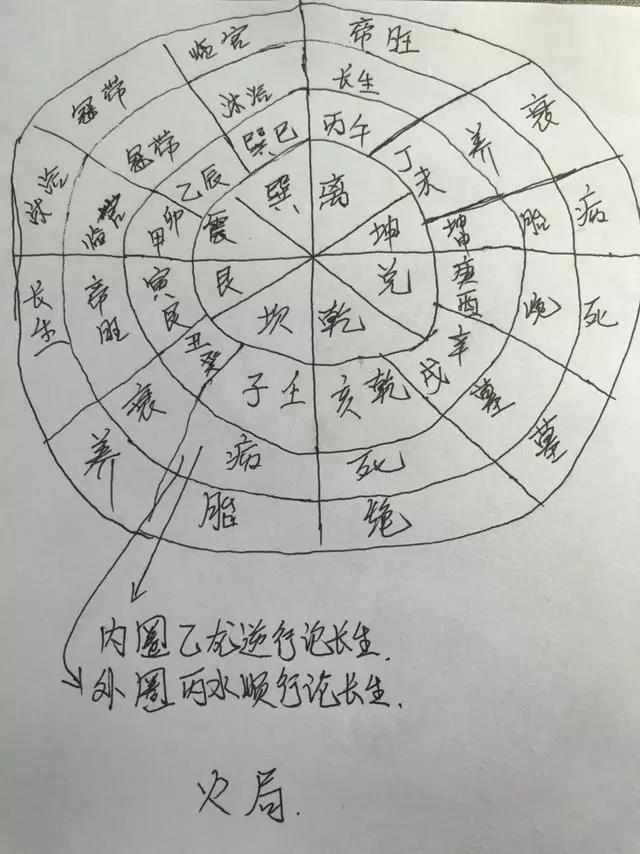 临官 帝旺
冠带 衰
沐浴 病
长生 死
养 墓
胎 绝
沐浴 长生
冠带 养
临官 胎
帝旺 绝
衰 墓
病 死
巽巳 丙午
乙辰 丁未
甲卯 坤申
寅艮 酉
丑癸 辛戌
子壬 亥乾
巽 离
震 坤
艮 兑
坎 乾
内圈乙龙逆行论长生.
外圈丙水顺行论长生.
火局.